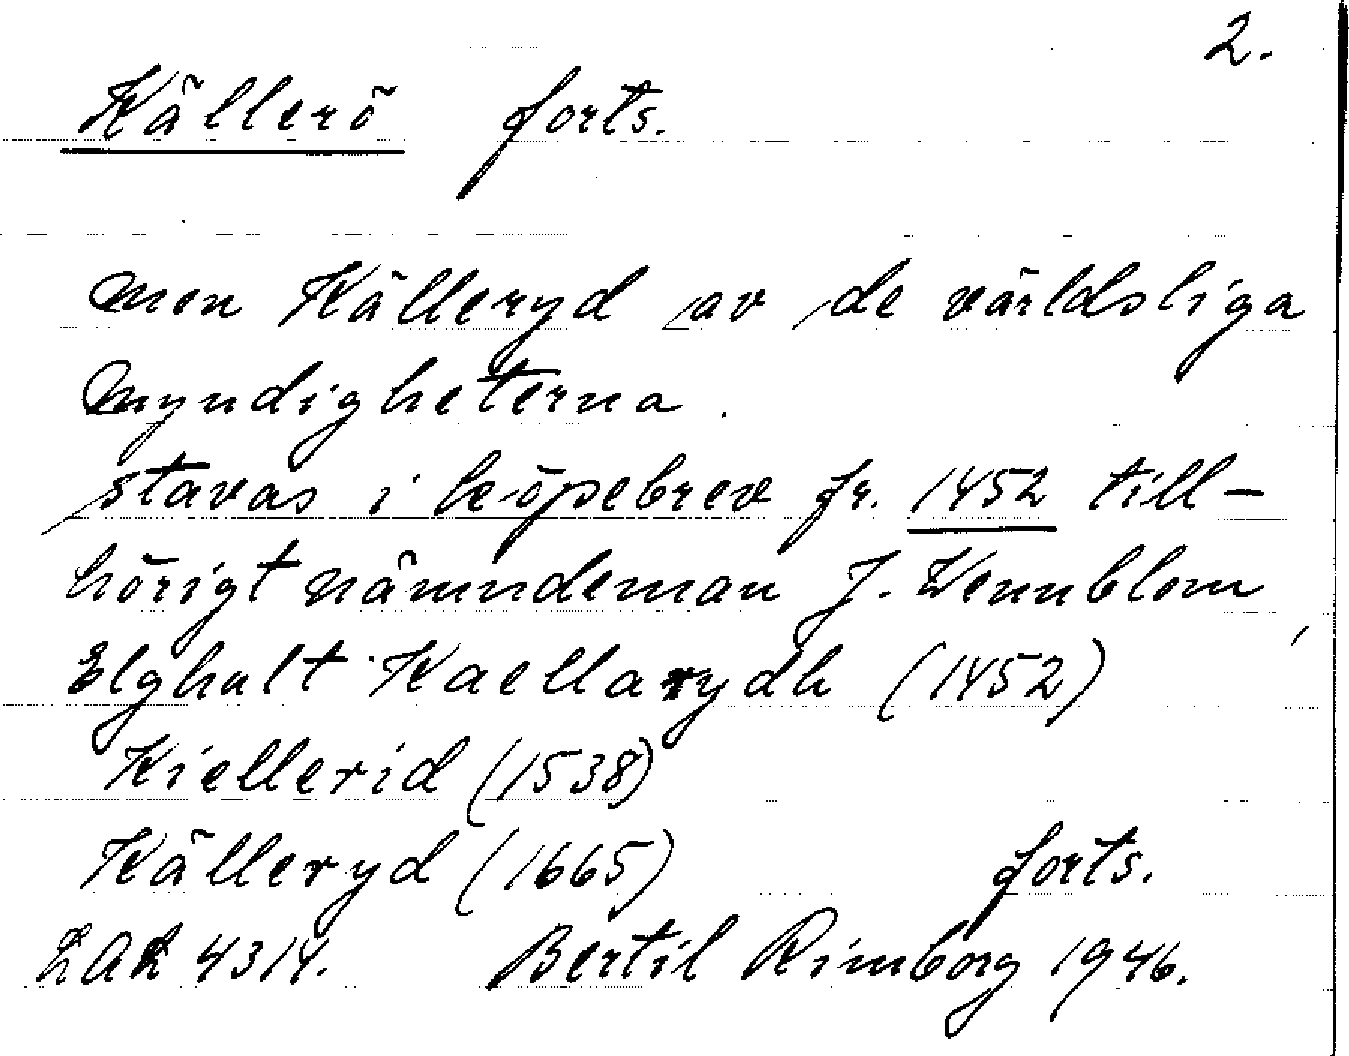 2.
Källerö forts.
men Källeryd av de världsliga
myndigheterna.
stavas i köpebrev fr. 1452 till-
hörigt nämndeman J. Wennblom,
Elghult Kaellarydh (1452)
Kiellerid (1538)
Källeryd (1665) forts.
LAL 4314. Bertil Rimborg 1946.